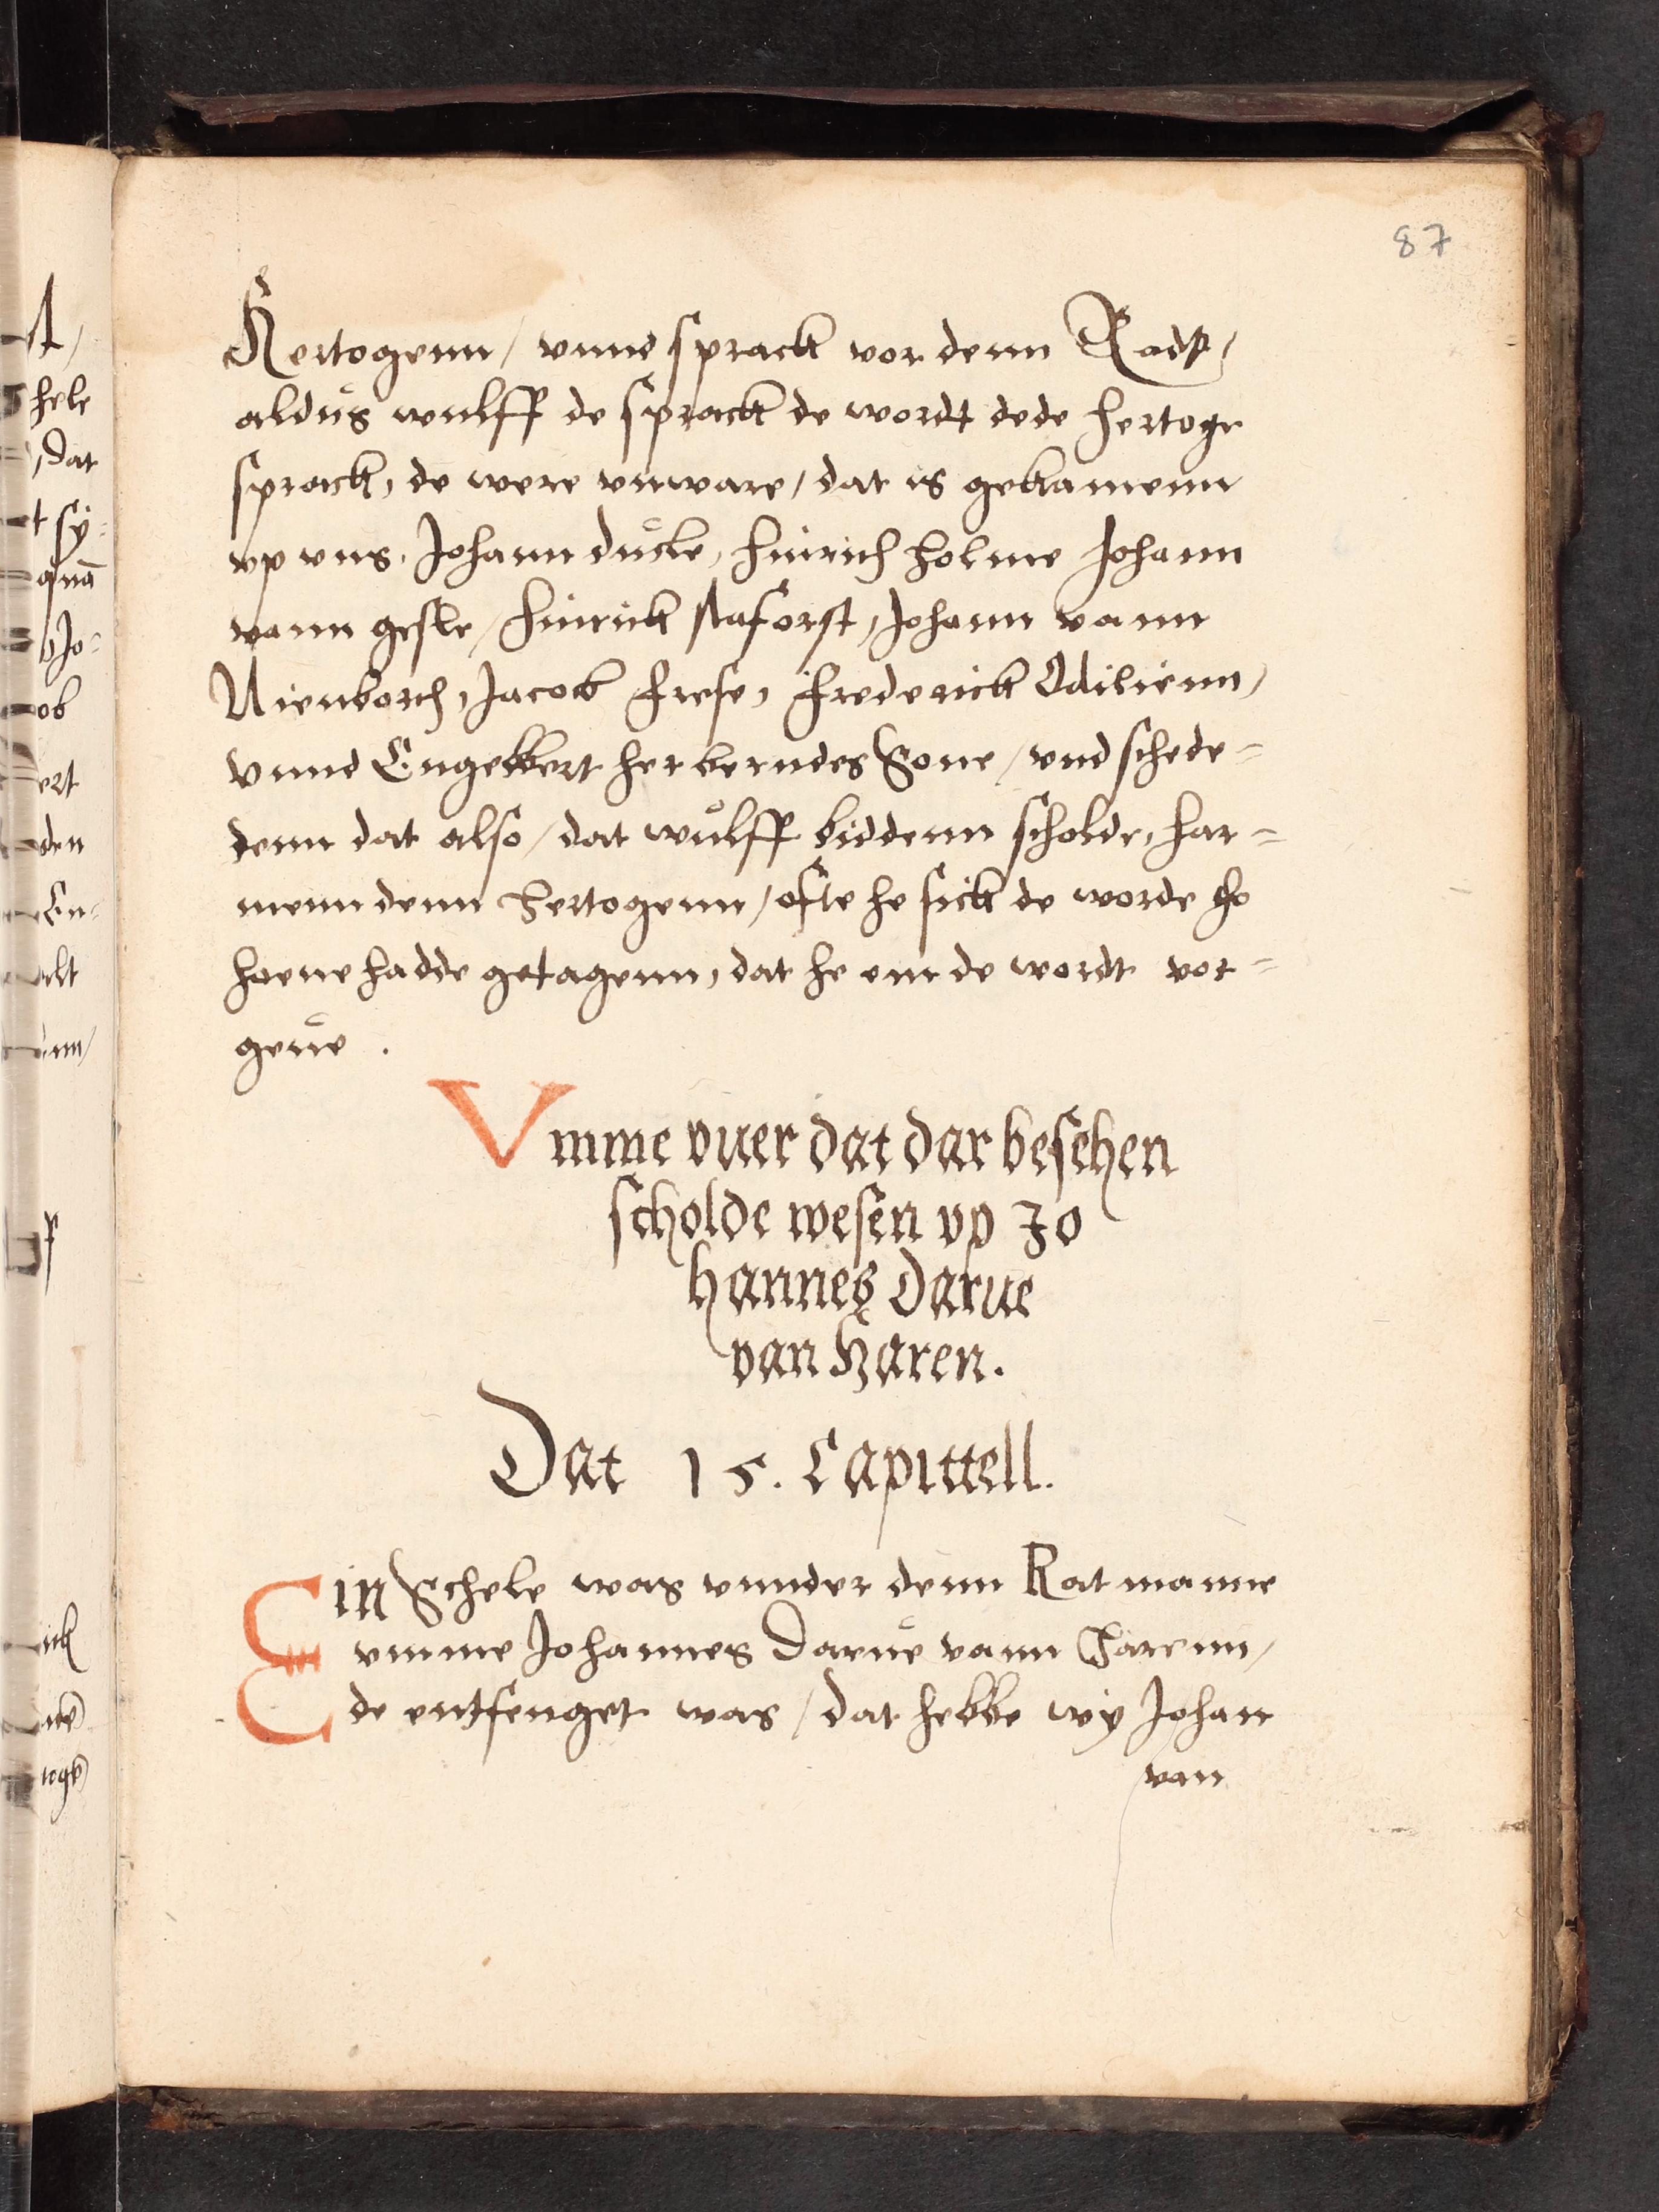 87
Hertogenn / vnnd sprack vor denn Rade /
aldus wulff de sprack de wordt dede hertoge
sprack, de were vnware / dat is gekamenn
vp vns. Johann ducke, hinrich holme Johann
vann gesle / hinrick staforst, Johann vann
Nienborch, Jacob frese, frederick Odilienn /
Vnnd Engelbert her berndes Sone / vnd schede=
denn dat also / dat wulff biddenn scholde, har=
menn denn Hertogenn / ofte he sick de worde tho
hoene hadde getagenn, dat he em de wordt vor=
geue .
Vmme vuer dat dar besehen
scholde wesen vp Jo
hannes darue
van Haren.
Dat 15. Capittell.
Ein Schele was vnnder denn Ratmanne
vmme Johannes Darue vann Harenn /
de entfenget was / dat hebbe wy Johan
van